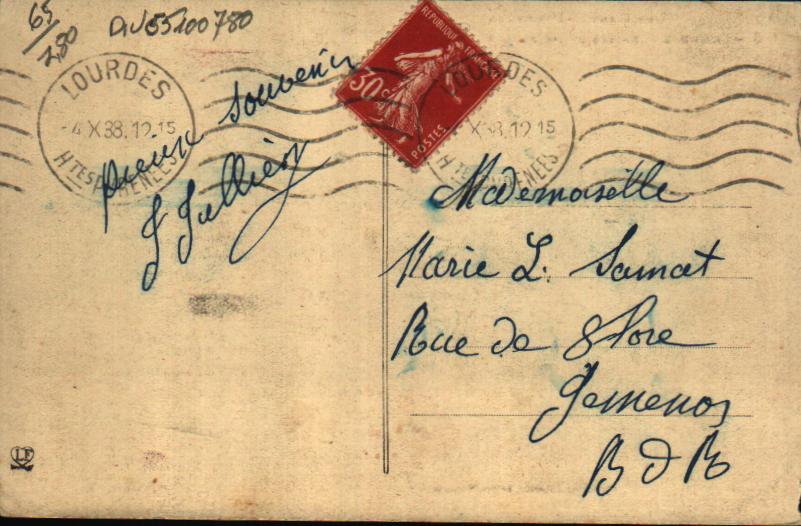 65/2,50
DIV55100780
LOURDES
-4 X 38.12 15
HTES PYRENEES
REPUBLIQUE FRANC
30c
POSTES
LOURDES
X 38.12 15
HTES PYRENEES
pieux souvenir
J Jullien
Mademoiselle
Marie L. Samat
Rue de Flore
Gemenos
B d R
LF